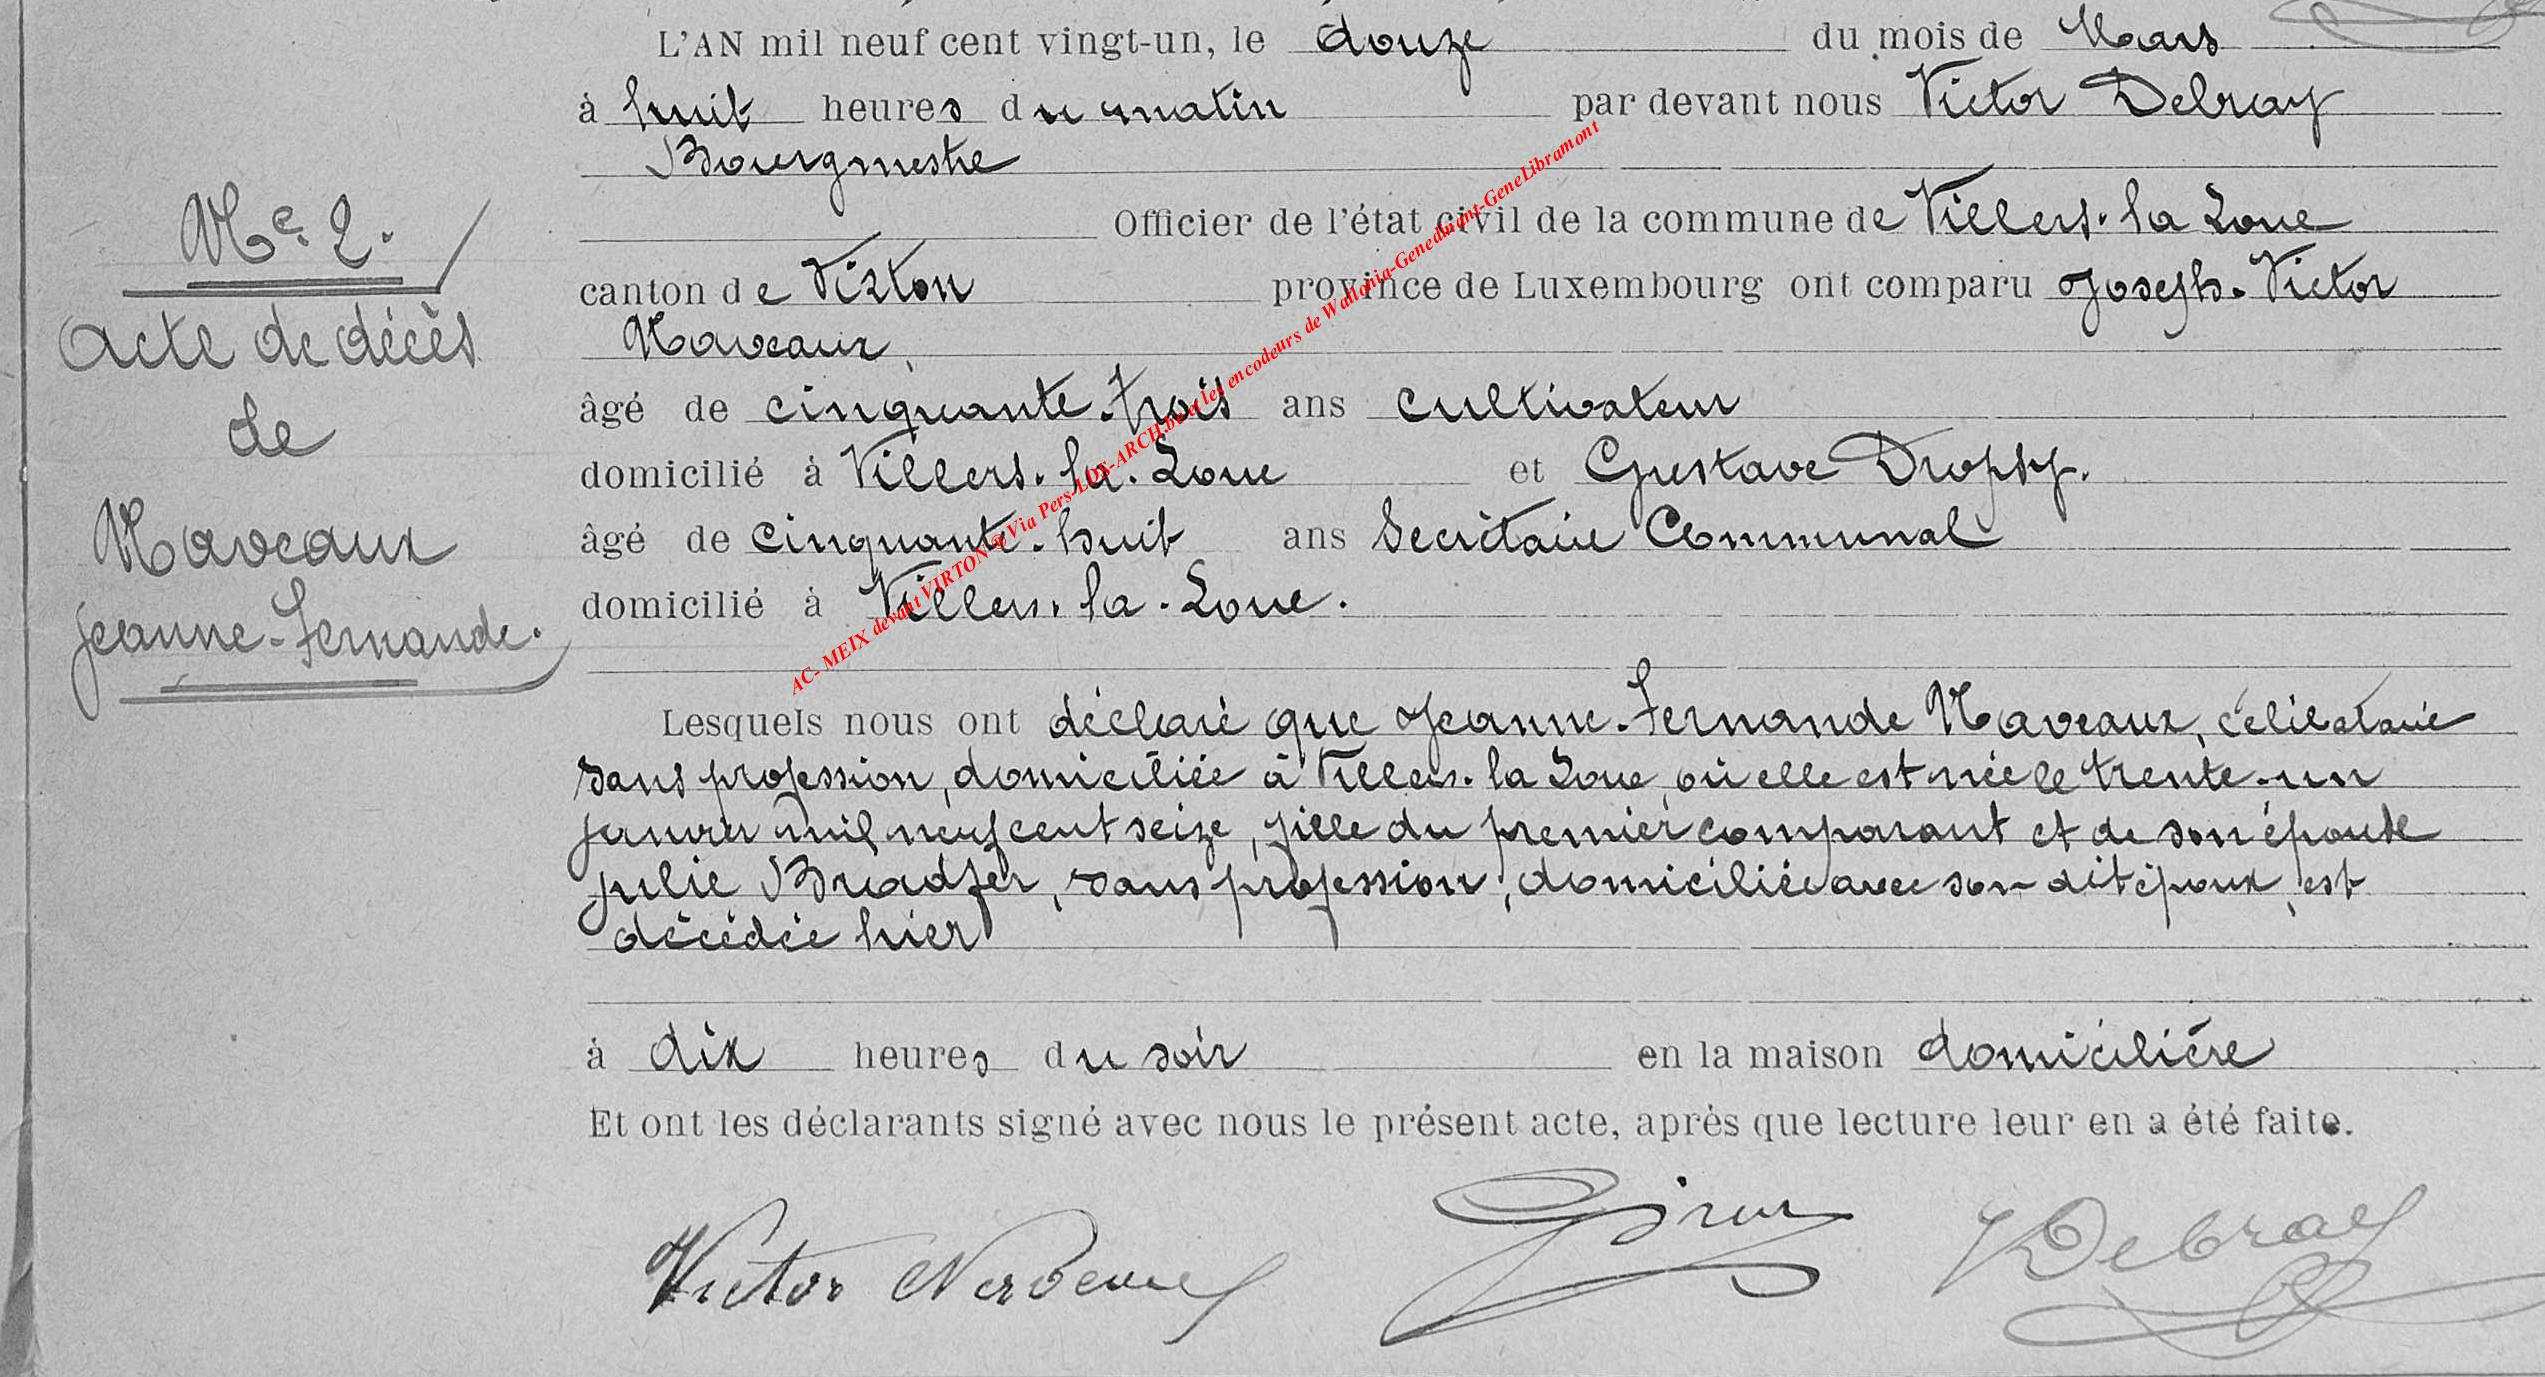 L'AN mil neuf cent vingt-un, le douze du mois de Mars
à huit heures du matin par devant nous Victor Debray
Bourgmestre
Officier de l'état civil de la commune de Villers-la-Loue
canton de Virton province de Luxembourg ont comparu Joseph-Victor
Naveaux,
âgé de cinquante-trois ans cultivateur
domicilié à Villers-la-Loue et Gustave Dropsy.
âgé de cinquante-huit ans Secrétaire Communal
domicilié à Villers-la-Loue.
N° 2.
Acte de décès
de
Naveaux
Jeanne-Fernande.
Lesquels nous ont déclaré que Jeanne-Fernande Naveaux, célibataire
sans profession, domiciliée à Villers-la-Loue, où elle est née le trente-un
janvier mil neuf cent seize, fille du premier comparant et de son épouse
Julie Bradfer, sans profession, domiciliée avec son dit époux, est
décédée hier
à dix heures du soir en la maison domicilière
Et ont les déclarants signé avec nous le présent acte, après que lecture leur en a été faite.
Victor Naveaux VDebray
AC- MEIX devant VIRTON Via Pers-LUX-ARCH.be et les encodeurs de Wallonia-Genedinant-GeneLibramont